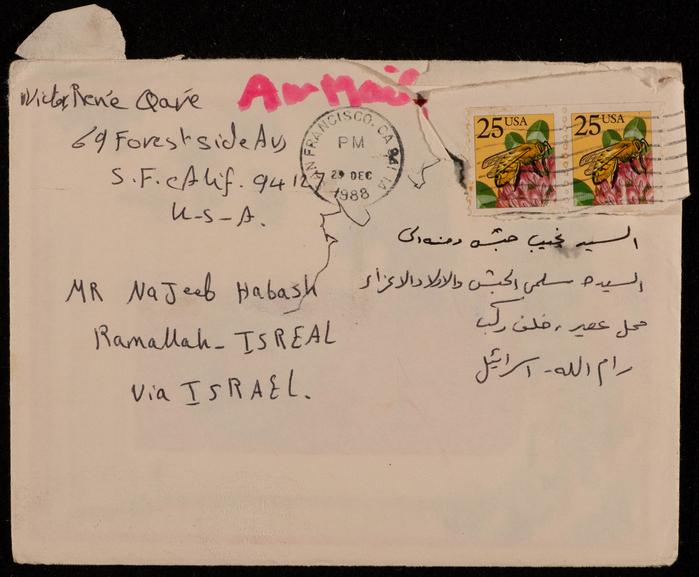 Victor René Qare
Air Mail
69 Forestside Av
S.F. cAlif. 94127
U-S-A.
SAN FRANCISCO, CA 941
PM
29 DEC
1988
25 USA
25 USA
MR NaJeeb Habash
Ramallah - ISREAL
Via ISRAEL.
السيد نجيب حبش
السيدة سلمى الحبش والاولاد الاعزاء
محل عصير، خلف ركب
رام الله - اسرائيل